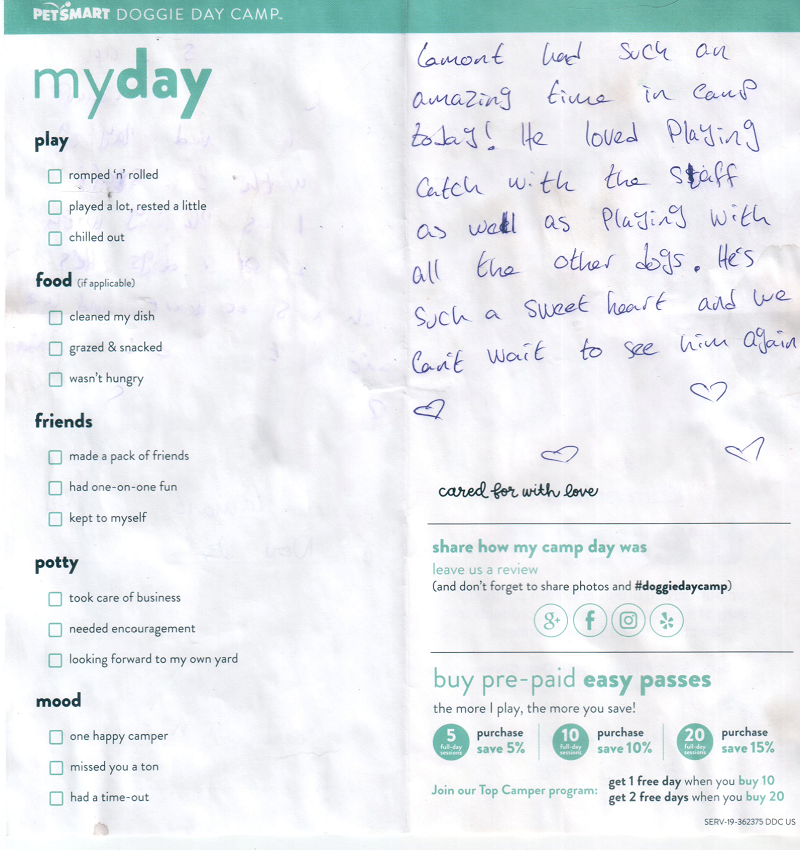 PETSMART DOGGIE DAY CAMP™
myday
play
romped 'n' rolled
played a lot, rested a little
chilled out
food (if applicable)
cleaned my dish
grazed & snacked
wasn't hungry
friends
made a pack of friends
had one-on-one fun
kept to myself
potty
took care of business
needed encouragement
looking forward to my own yard
mood
one happy camper
missed you a ton
had a time-out
Lamont had such an
amazing time in camp
today! He loved Playing
catch with the staff
as well as Playing with
all the other dogs. He's
such a sweet heart and we
can't wait to see him again
cared for with love
share how my camp day was
leave us a review
(and don't forget to share photos and #doggiedaycamp)
g+ f
buy pre-paid easy passes
the more I play, the more you save!
5 full-day sessions purchase save 5%
10 full-day sessions purchase save 10%
20 full-day sessions purchase save 15%
Join our Top Camper program: get 1 free day when you buy 10
get 2 free days when you buy 20
SERV-19-362375 DDC US